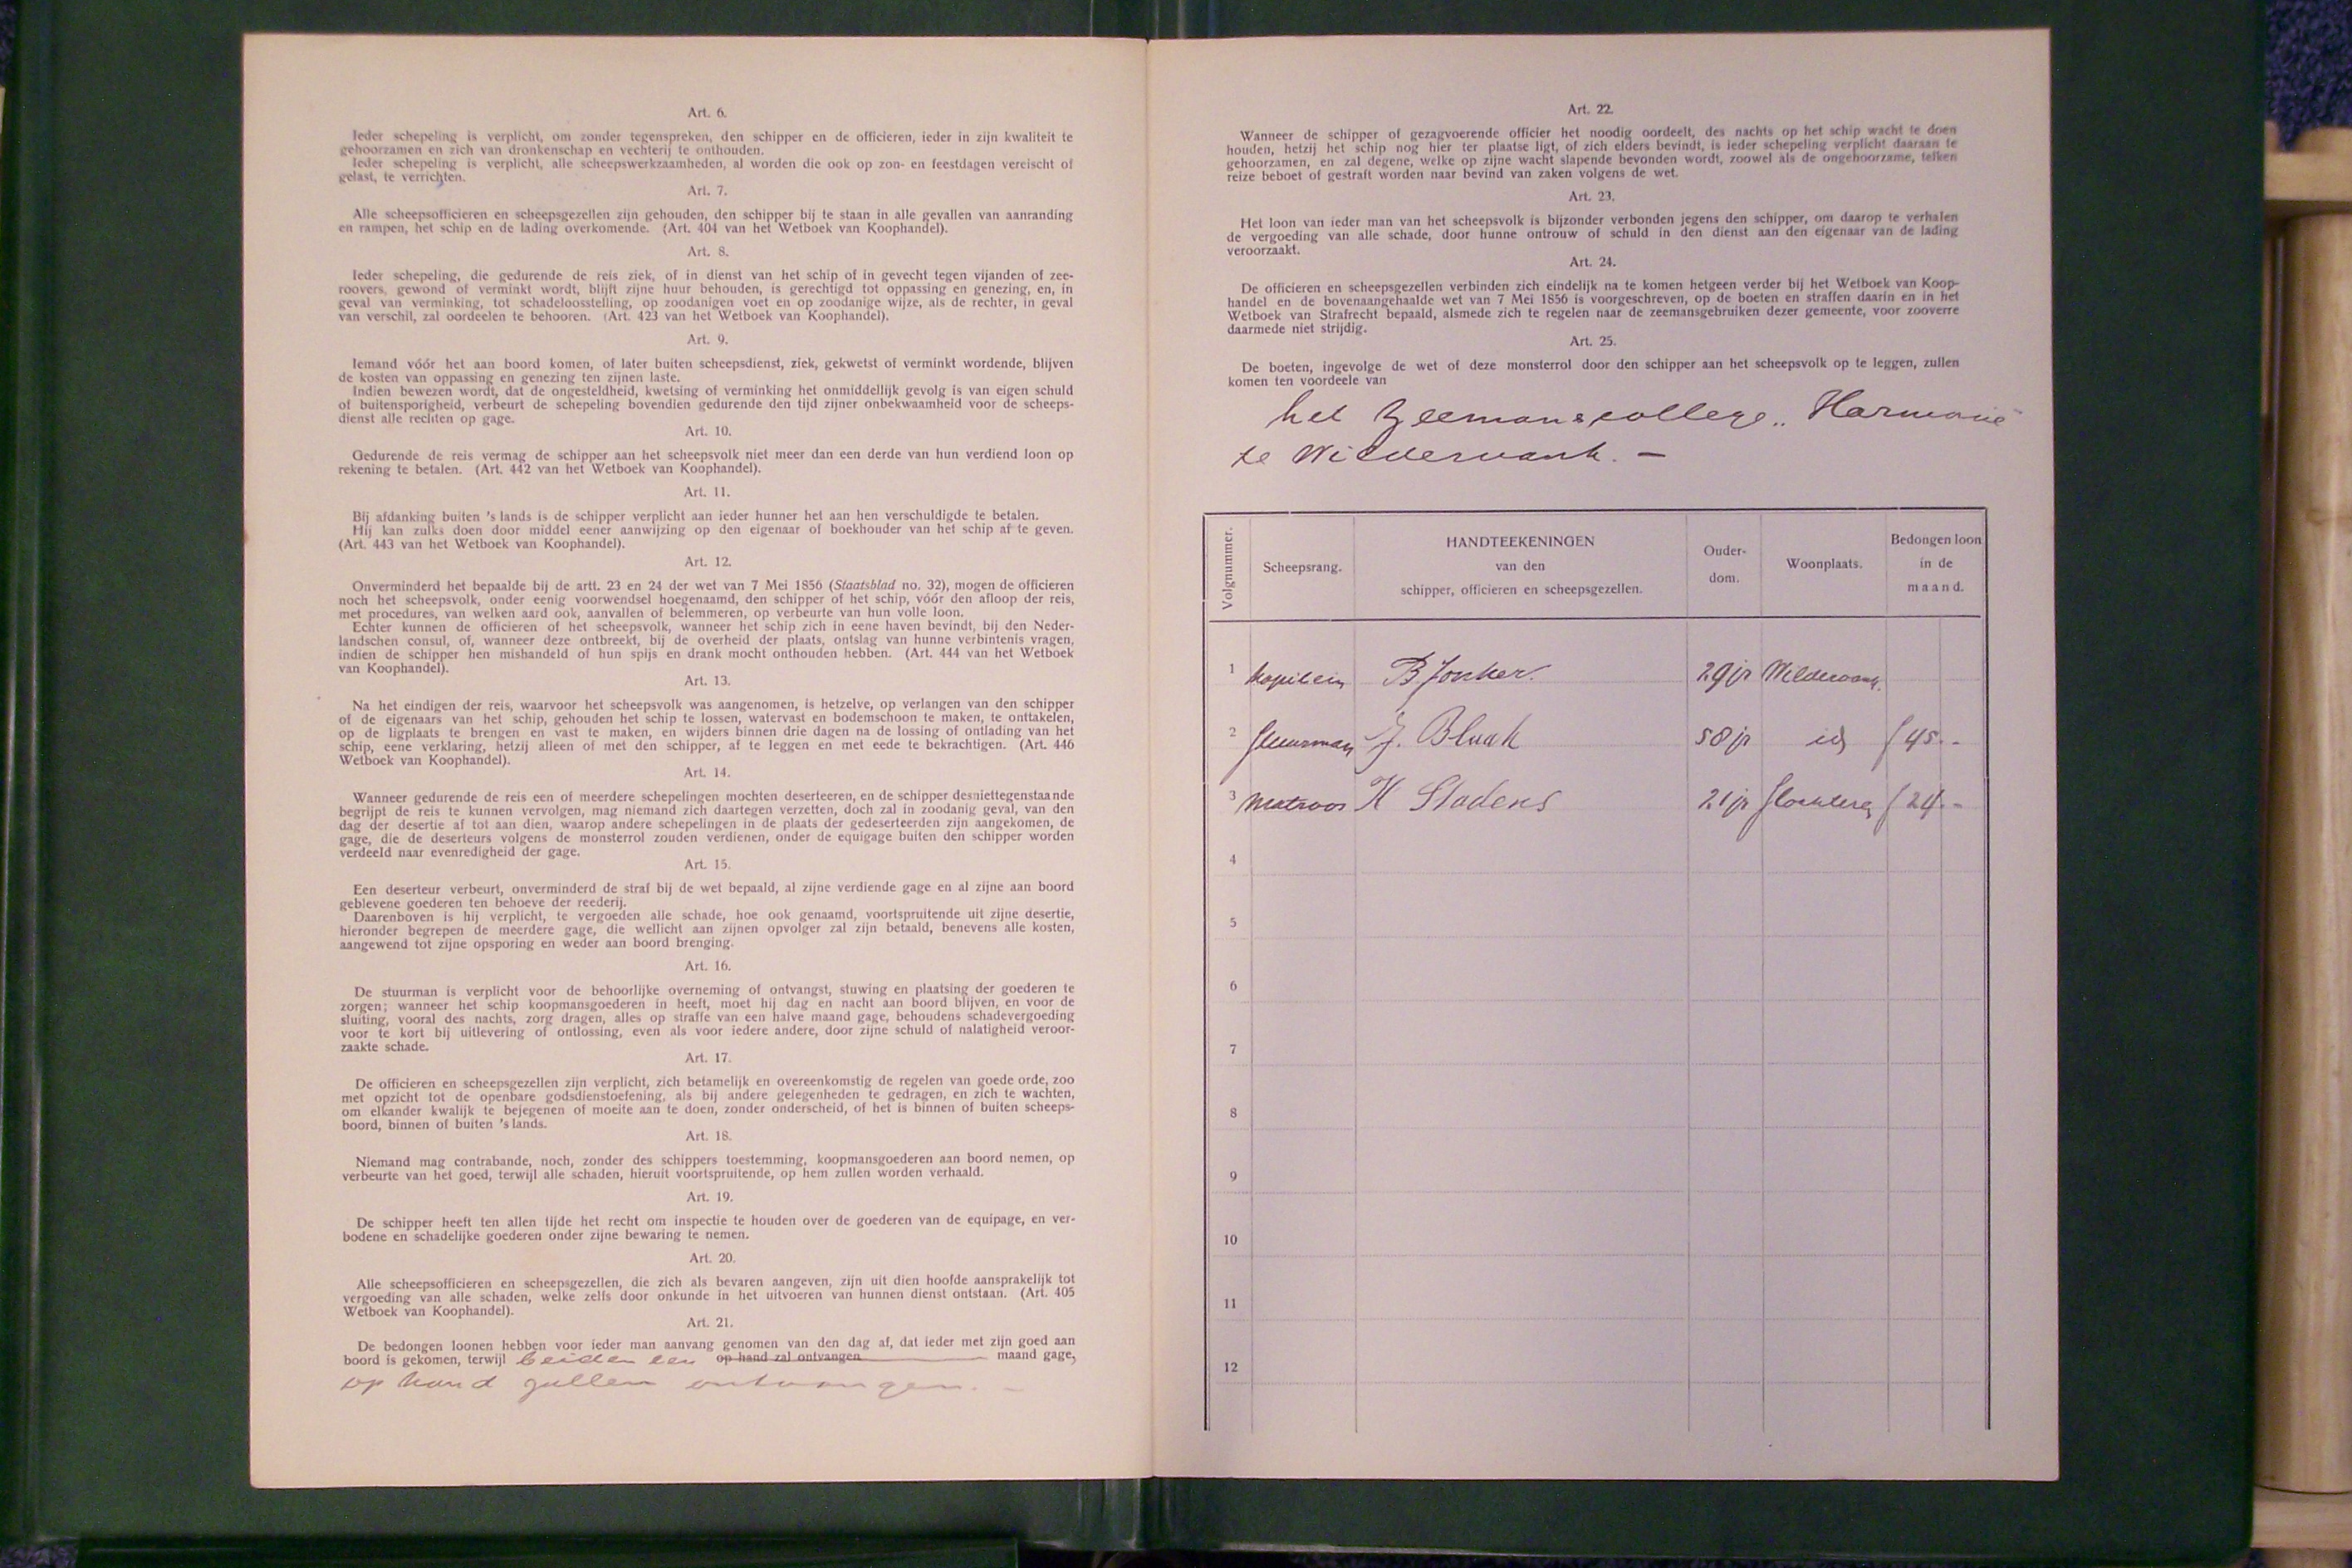 Art. 6.
Ieder schepeling is verplicht, om zonder tegenspreken, den schipper en de officieren, ieder in zijn kwaliteit te
gehoorzamen en zich van dronkenschap en vechterij te onthouden.
Ieder schepeling is verplicht, alle scheepswerkzaamheden, al worden die ook op zon- en feestdagen vereischt of
gelast, te verrichten.
Art. 7.
Alle scheepsofficieren en scheepsgezellen zijn gehouden, den schipper bij te staan in alle gevallen van aanranding
en rampen, het schip en de lading overkomende. (Art. 404 van het Wetboek van Koophandel).
Art. 8.
Ieder schepeling, die gedurende de reis ziek, of in dienst van het schip of in gevecht tegen vijanden of zee-
roovers, gewond of verminkt wordt, blijft zijne huur behouden, is gerechtigd tot oppassing en genezing, en, in
geval van verminking, tot schadeloosstelling, op zoodanigen voet en op zoodanige wijze, als de rechter, in geval
van verschil, zal oordeelen te behooren. (Art. 423 van het Wetboek van Koophandel).
Art. 9.
Iemand vóór het aan boord komen, of later buiten scheepsdienst, ziek, gekwetst of verminkt wordende, blijven
de kosten van oppassing en genezing ten zijnen laste.
Indien bewezen wordt, dat de ongesteldheid, kwetsing of verminking het onmiddellijk gevolg is van eigen schuld
of buitensporigheid, verbeurt de schepeling bovendien gedurende den tijd zijner onbekwaamheid voor de scheeps-
dienst alle rechten op gage.
Art. 10.
Gedurende de reis vermag de schipper aan het scheepsvolk niet meer dan een derde van hun verdiend loon op
rekening te betalen. (Art. 442 van het Wetboek van Koophandel).
Art. 11.
Bij afdanking buiten 's lands is de schipper verplicht aan ieder hunner het aan hen verschuldigde te betalen.
Hij kan zulks doen door middel eener aanwijzing op den eigenaar of boekhouder van het schip af te geven.
(Art. 443 van het Wetboek van Koophandel).
Art. 12.
Onverminderd het bepaalde bij de artt. 23 en 24 der wet van 7 Mei 1856 (Staatsblad no. 32), mogen de officieren
noch het scheepsvolk, onder eenig voorwendsel hoegenaamd, den schipper of het schip, vóór den afloop der reis,
met procedures, van welken aard ook, aanvallen of belemmeren, op verbeurte van hun volle loon.
Echter kunnen de officieren of het scheepsvolk, wanneer het schip zich in eene haven bevindt, bij den Neder-
landschen consul, of, wanneer deze ontbreekt, bij de overheid der plaats, ontslag van hunne verbintenis vragen,
indien de schipper hen mishandeld of hun spijs en drank mocht onthouden hebben. (Art. 444 van het Wetboek
van Koophandel).
Art. 13.
Na het eindigen der reis, waarvoor het scheepsvolk was aangenomen, is hetzelve, op verlangen van den schipper
of de eigenaars van het schip, gehouden het schip te lossen, watervast en bodemschoon te maken, te onttakelen,
op de ligplaats te brengen en vast te maken, en wijders binnen drie dagen na de lossing of ontlading van het
schip, eene verklaring, hetzij alleen of met den schipper, af te leggen en met eede te bekrachtigen. (Art. 446
Wetboek van Koophandel).
Art. 14.
Wanneer gedurende de reis een of meerdere schepelingen mochten deserteeren, en de schipper desniettegenstaande
begrijpt de reis te kunnen vervolgen, mag niemand zich daartegen verzetten, doch zal in zoodanig geval, van den
dag der desertie af tot aan dien, waarop andere schepelingen in de plaats der gedeserteerden zijn aangekomen, de
gage, die de deserteurs volgens de monsterrol zouden verdienen, onder de equigage buiten den schipper worden
verdeeld naar evenredigheid der gage.
Art. 15.
Een deserteur verbeurt, onverminderd de straf bij de wet bepaald, al zijne verdiende gage en al zijne aan boord
geblevene goederen ten behoeve der reederij.
Daarenboven is hij verplicht, te vergoeden alle schade, hoe ook genaamd, voortspruitende uit zijne desertie,
hieronder begrepen de meerdere gage, die wellicht aan zijnen opvolger zal zijn betaald, benevens alle kosten,
aangewend tot zijne opsporing en weder aan boord brenging.
Art. 16.
De stuurman is verplicht voor de behoorlijke overneming of ontvangst, stuwing en plaatsing der goederen te
zorgen; wanneer het schip koopmansgoederen in heeft, moet hij dag en nacht aan boord blijven, en voor de
sluiting, vooral des nachts, zorg dragen, alles op straffe van een halve maand gage, behoudens schadevergoeding
voor te kort bij uitlevering of ontlossing, even als voor iedere andere, door zijne schuld of nalatigheid veroor-
zaakte schade.
Art. 17.
De officieren en scheepsgezellen zijn verplicht, zich betamelijk en overeenkomstig de regelen van goede orde, zoo
met opzicht tot de openbare godsdienstoefening, als bij andere gelegenheden te gedragen, en zich te wachten,
om elkander kwalijk te bejegenen of moeite aan te doen, zonder onderscheid, of het is binnen of buiten scheeps-
boord, binnen of buiten 's lands.
Art. 18.
Niemand mag contrabande, noch, zonder des schippers toestemming, koopmansgoederen aan boord nemen, op
verbeurte van het goed, terwijl alle schaden, hieruit voortspruitende, op hem zullen worden verhaald.
Art. 19.
De schipper heeft ten allen tijde het recht om inspectie te houden over de goederen van de equipage, en ver-
bodene en schadelijke goederen onder zijne bewaring te nemen.
Art. 20.
Alle scheepsofficieren en scheepsgezellen, die zich als bevaren aangeven, zijn uit dien hoofde aansprakelijk tot
vergoeding van alle schaden, welke zelfs door onkunde in het uitvoeren van hunnen dienst ontstaan. (Art. 405
Wetboek van Koophandel).
Art. 21.
De bedongen loonen hebben voor ieder man aanvang genomen van den dag af, dat ieder met zijn goed aan
boord is gekomen, terwijl beiden een op hand zal ontvangen maand gage,
op hand zullen ontvangen. -
Art. 22.
Wanneer de schipper of gezagvoerende officier het noodig oordeelt, des nachts op het schip wacht te doen
houden, hetzij het schip nog hier ter plaatse ligt, of zich elders bevindt, is ieder schepeling verplicht daaraan te
gehoorzamen, en zal degene, welke op zijne wacht slapende bevonden wordt, zoowel als de ongehoorzame, telken
reize beboet of gestraft worden naar bevind van zaken volgens de wet.
Art. 23.
Het loon van ieder man van het scheepsvolk is bijzonder verbonden jegens den schipper, om daarop te verhalen
de vergoeding van alle schade, door hunne ontrouw of schuld in den dienst aan den eigenaar van de lading
veroorzaakt.
Art. 24.
De officieren en scheepsgezellen verbinden zich eindelijk na te komen hetgeen verder bij het Wetboek van Koop-
handel en de bovenaangehaalde wet van 7 Mei 1856 is voorgeschreven, op de boeten en straffen daarin en in het
Wetboek van Strafrecht bepaald, alsmede zich te regelen naar de zeemansgebruiken dezer gemeente, voor zooverre
daarmede niet strijdig.
Art. 25.
De boeten, ingevolge de wet of deze monsterrol door den schipper aan het scheepsvolk op te leggen, zullen
komen ten voordeele van
het Zeemanscollege „Harmonie"
te Wildervank. -
Volgnummer. Scheepsrang. HANDTEEKENINGEN van den schipper, officieren en scheepsgezellen. Ouder-dom. Woonplaats. Bedongen loon in de maand.
1 Kapitein B Jonker. 29 jr Wildervank.
2 Stuurman J. Blaak 58 jr id f 45.-
3 Matroos H Stadens 21 jr f 24.-
4
5
6
7
8
9
10
11
12